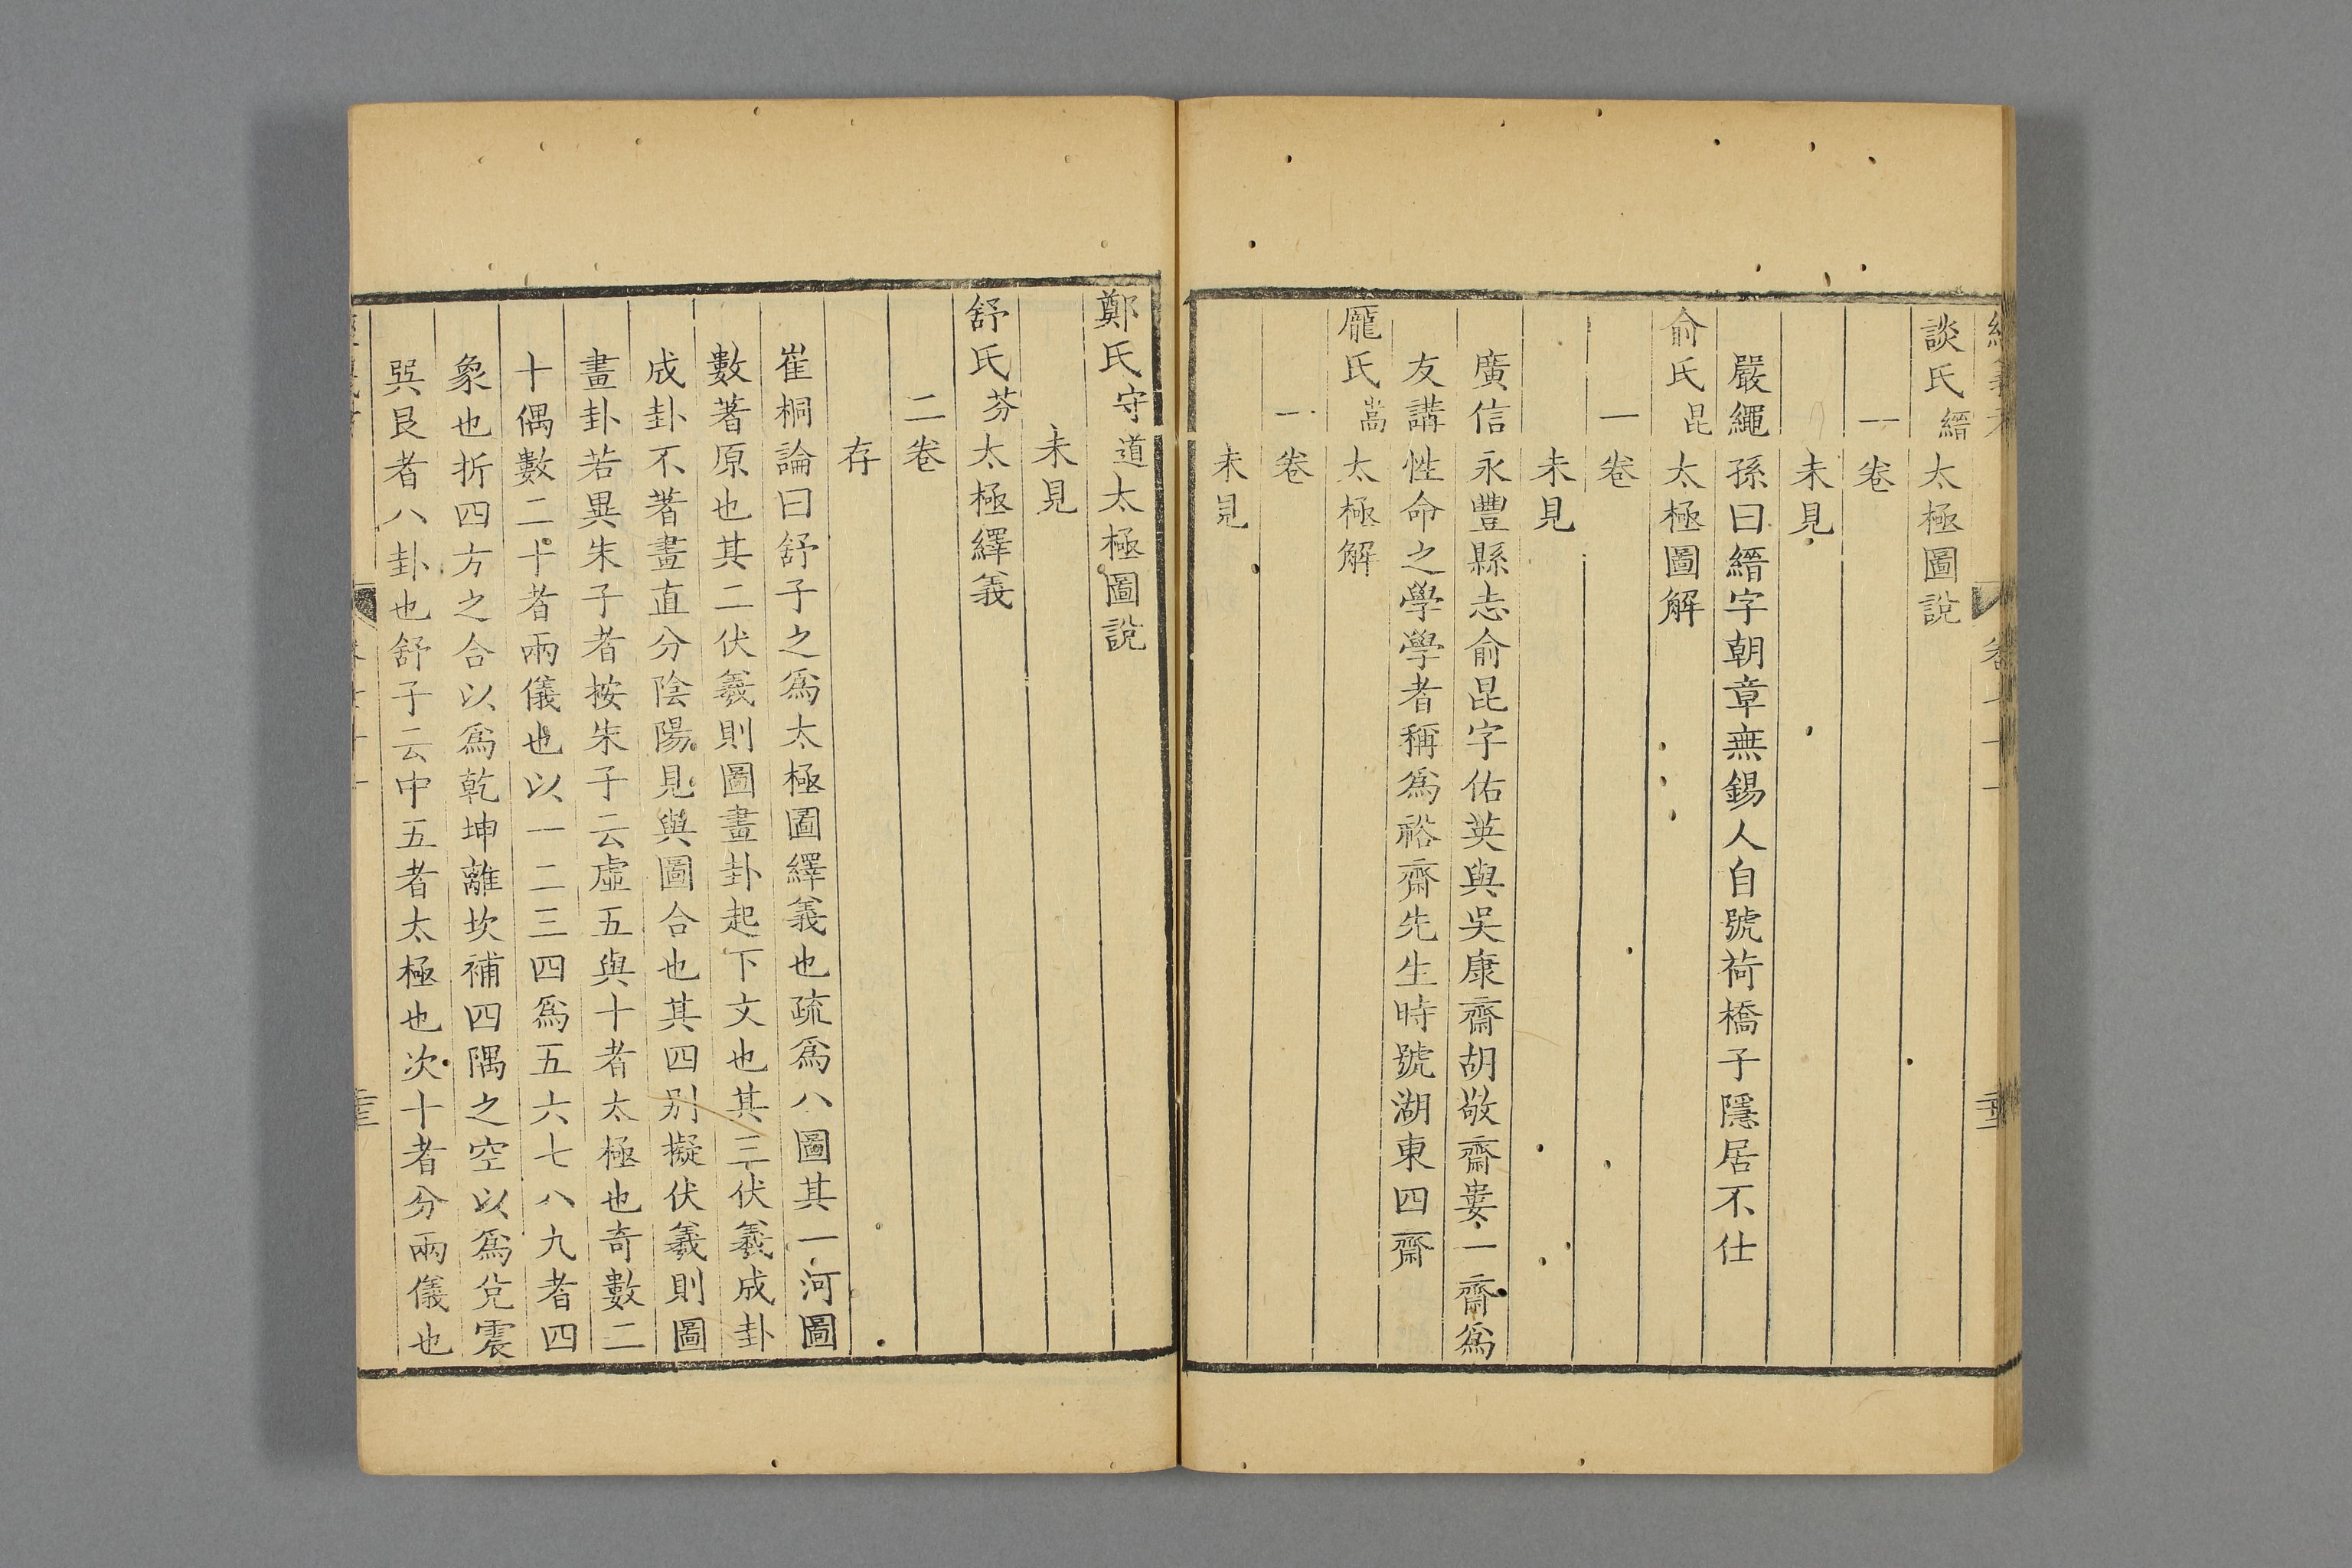 談氏縉太極圖說
一卷
未見
嚴繩孫曰縉字朝章無錫人自號荷橋子隱居不仕
俞氏昆太極圖解
一卷
未見
廣信永豐縣志俞昆字佑英與吳康齋胡敬齋婁一齋爲
友講性命之學學者稱爲裕齋先生時號湖東四齋
龎氏嵩太極解
一卷
未見
鄭氏守道太極圖說
未見
舒氏芬太極繹義
二卷
存
崔桐論曰舒子之爲太極圖繹義也疏爲八圖其一河圖
數著原也其二伏羲則圖畫卦起下文也其三伏羲成卦
成卦不著畫直分陰陽見與圖合也其四别擬伏羲則圖
畫卦若異朱子者按朱子云虛五與十者太極也奇數二
十偶數二十者兩儀也以一二三四爲五六七八九者四
象也折四方之合以爲乾坤離坎補四隅之空以爲兌震
巽艮者八卦也舒子云中五者太極也次十者分兩儀也